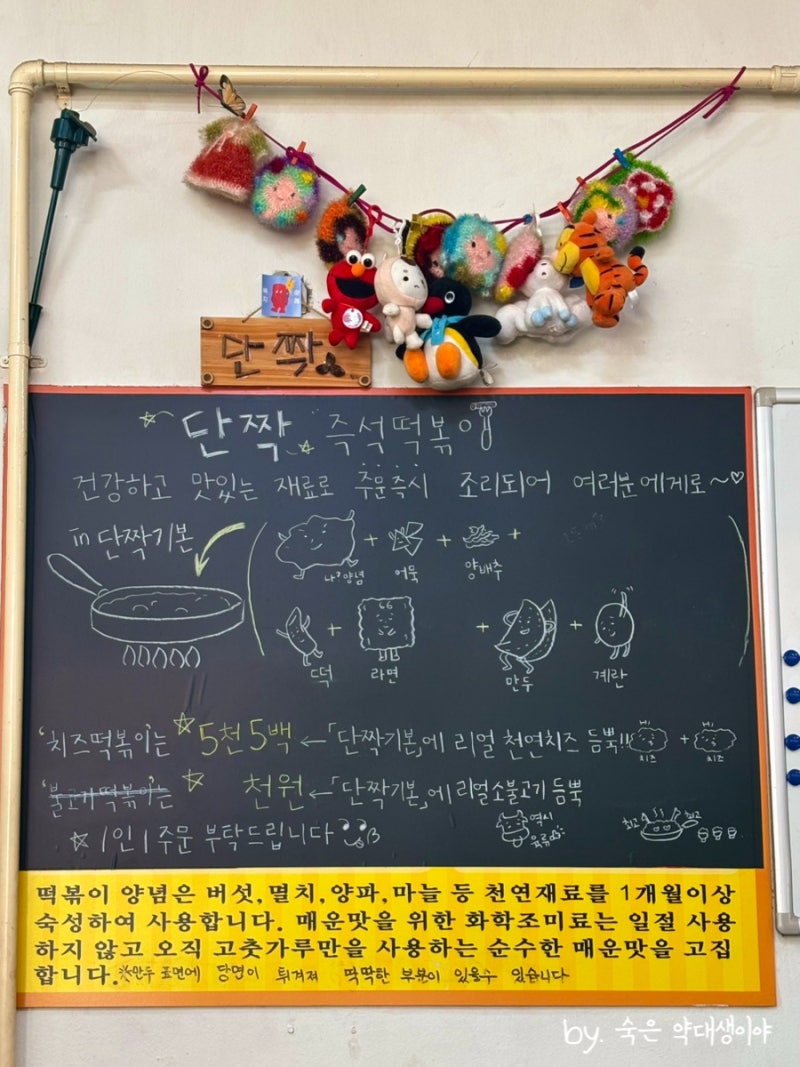 단짝
단짝 즉석떡볶이
건강하고 맛있는 재료로 주문즉시 조리되어 여러분에게로~♡
in 단짝기본
양념 + 어묵 + 양배추 +
떡 + 라면 + 만두 + 계란
'치즈떡볶이'는 ☆ 5천5백 ←「단짝기본」에 리얼 천연치즈 듬뿍!! Hi 치즈 + Hi 치즈
'불고기떡볶이'는 ☆ 천원 ←「단짝기본」에 리얼소불고기 듬뿍
☆ 1인 1주문 부탁드립니다
역시
육류
최고 최고
떡볶이 양념은 버섯,멸치,양파,마늘 등 천연재료를 1개월이상
숙성하여 사용합니다. 매운맛을 위한 화학조미료는 일절 사용
하지 않고 오직 고춧가루만을 사용하는 순수한 매운맛을 고집
합니다. ※만두 표면에 당면이 튀겨져 딱딱한 부분이 있을수 있습니다
by. 숙은 약대생이야